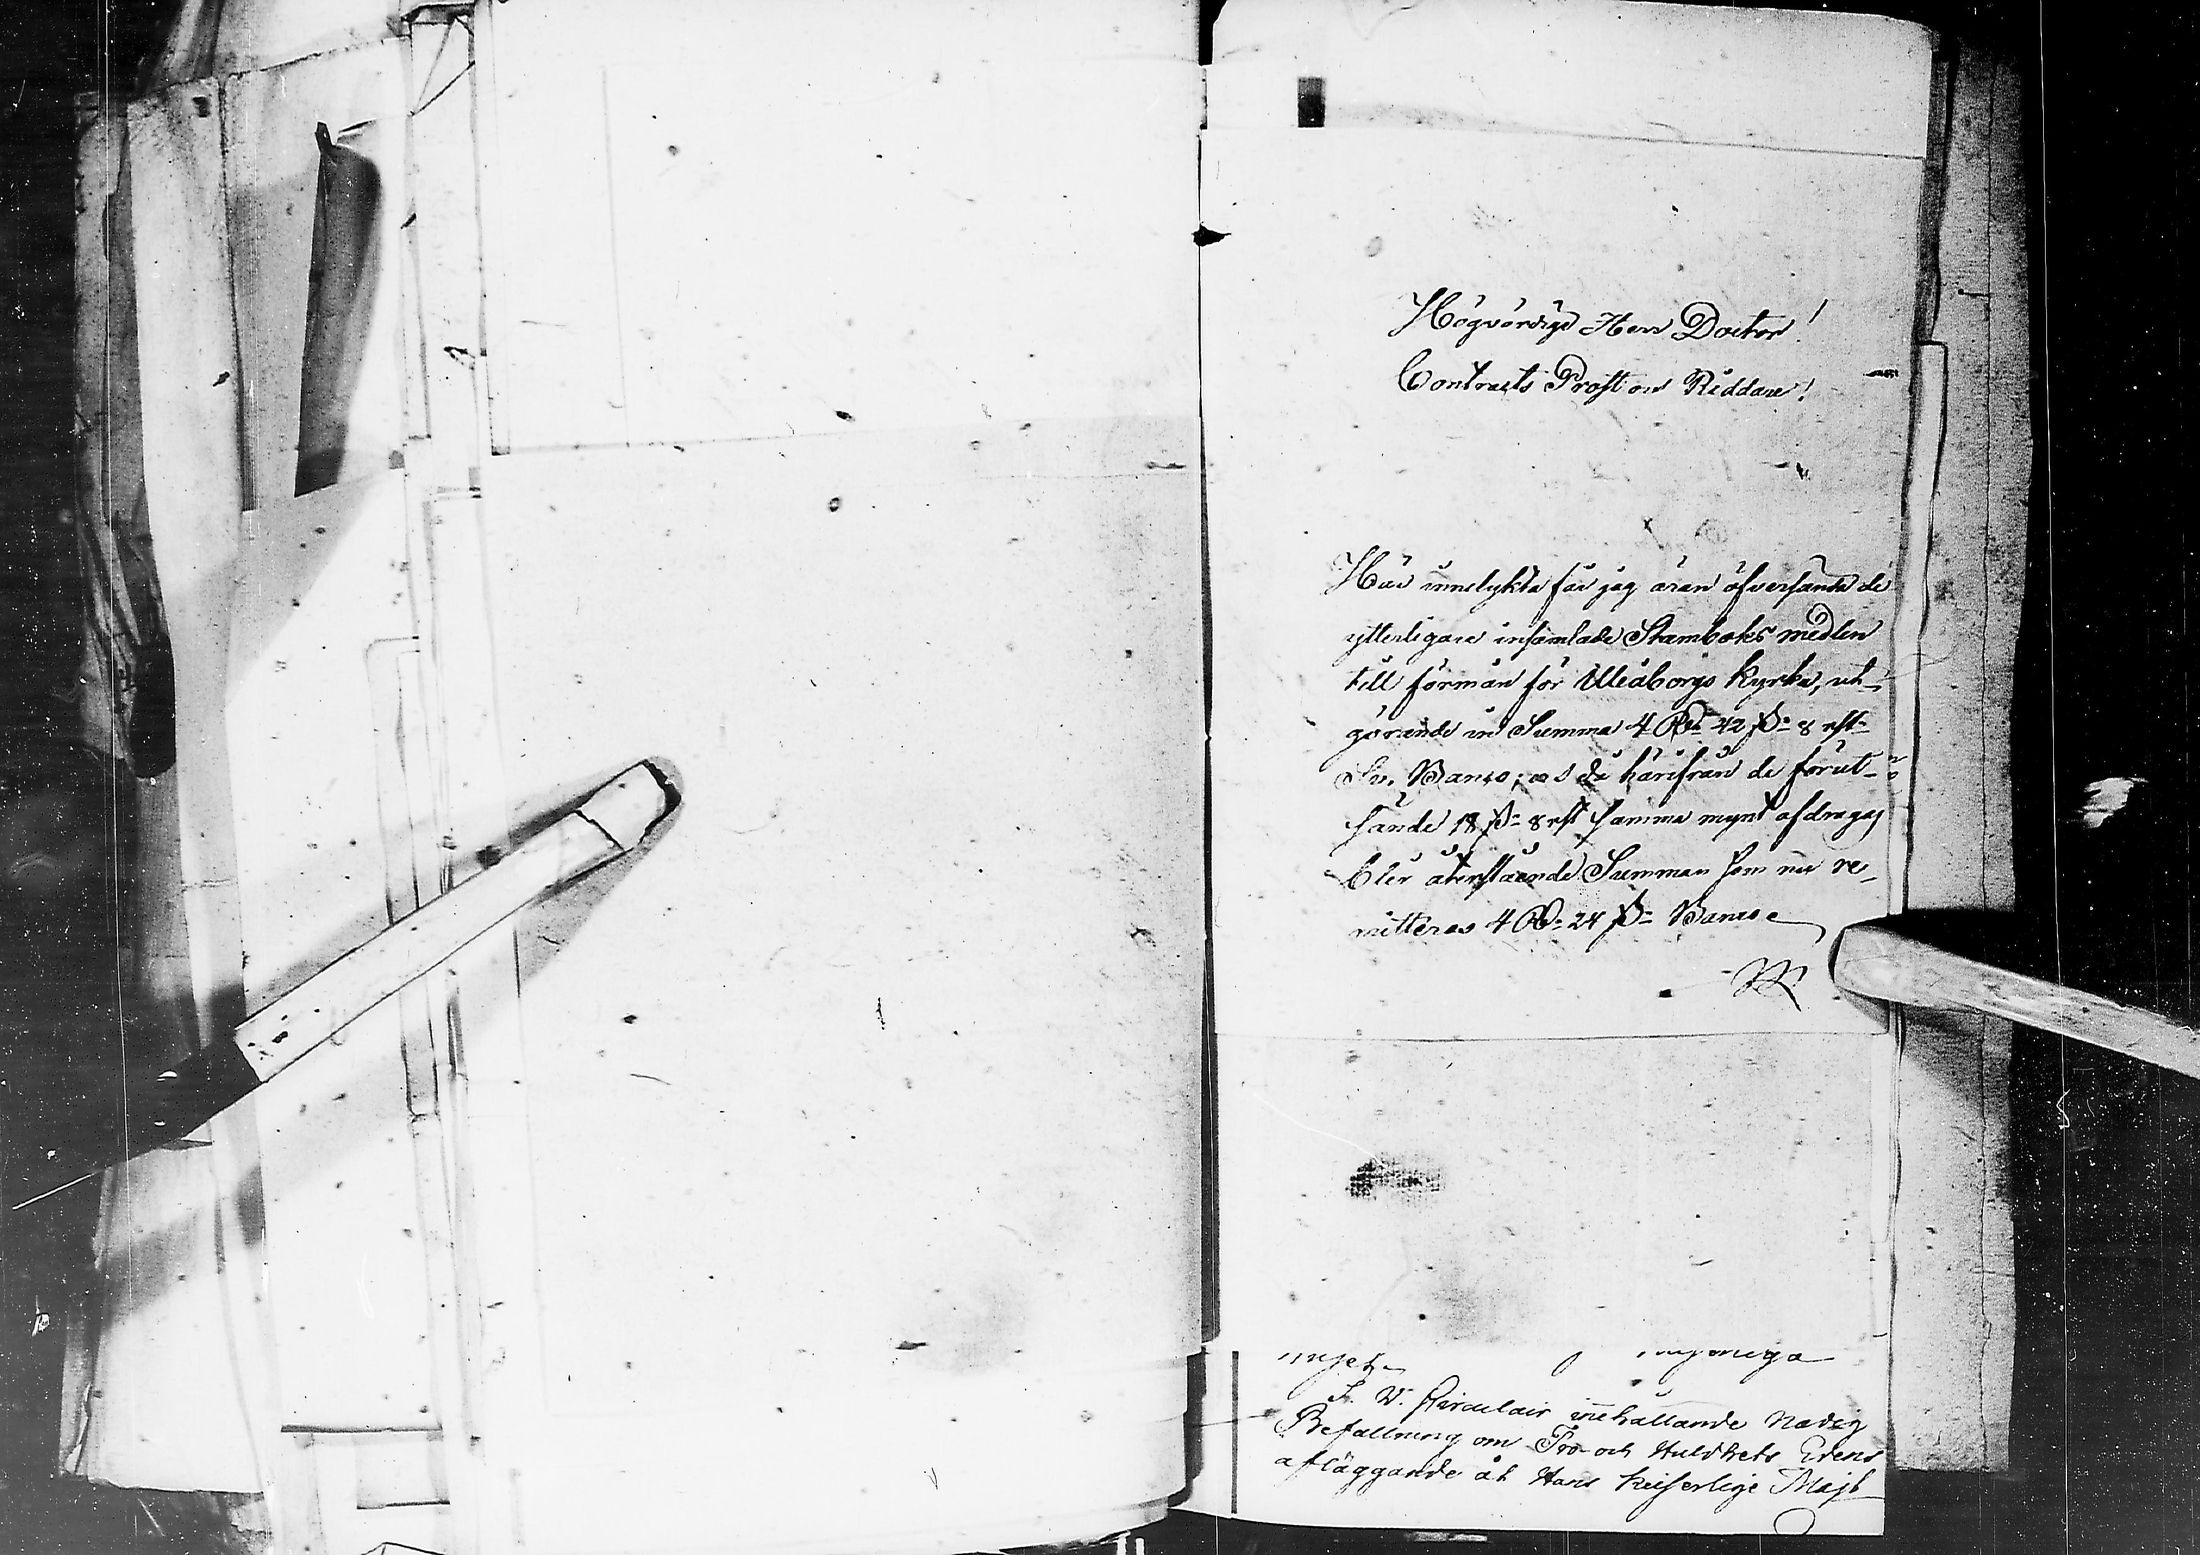 Högvördige Herr Doctor!
Contracts Prost och Riddare!
Här innelykta får jag äran öfversända de
ytterligare insamlade Stamboks medlen
till förmån för Uleåborgs Kyrka, ut-
görande in Summa 4 Rd 42 ß 8 rst
Sv. Banco; och då härifrån de förut
sände 18 ß 8 rst samma mynt afdrages
blir återstående Summan som nu re-
mitteras 4 Rd 24 ß Banco
S. W. Circulair innehållande Nådig
Befallning om Tro- och Huldhets Edens
afläggande åt Hans Keiserlige Majt